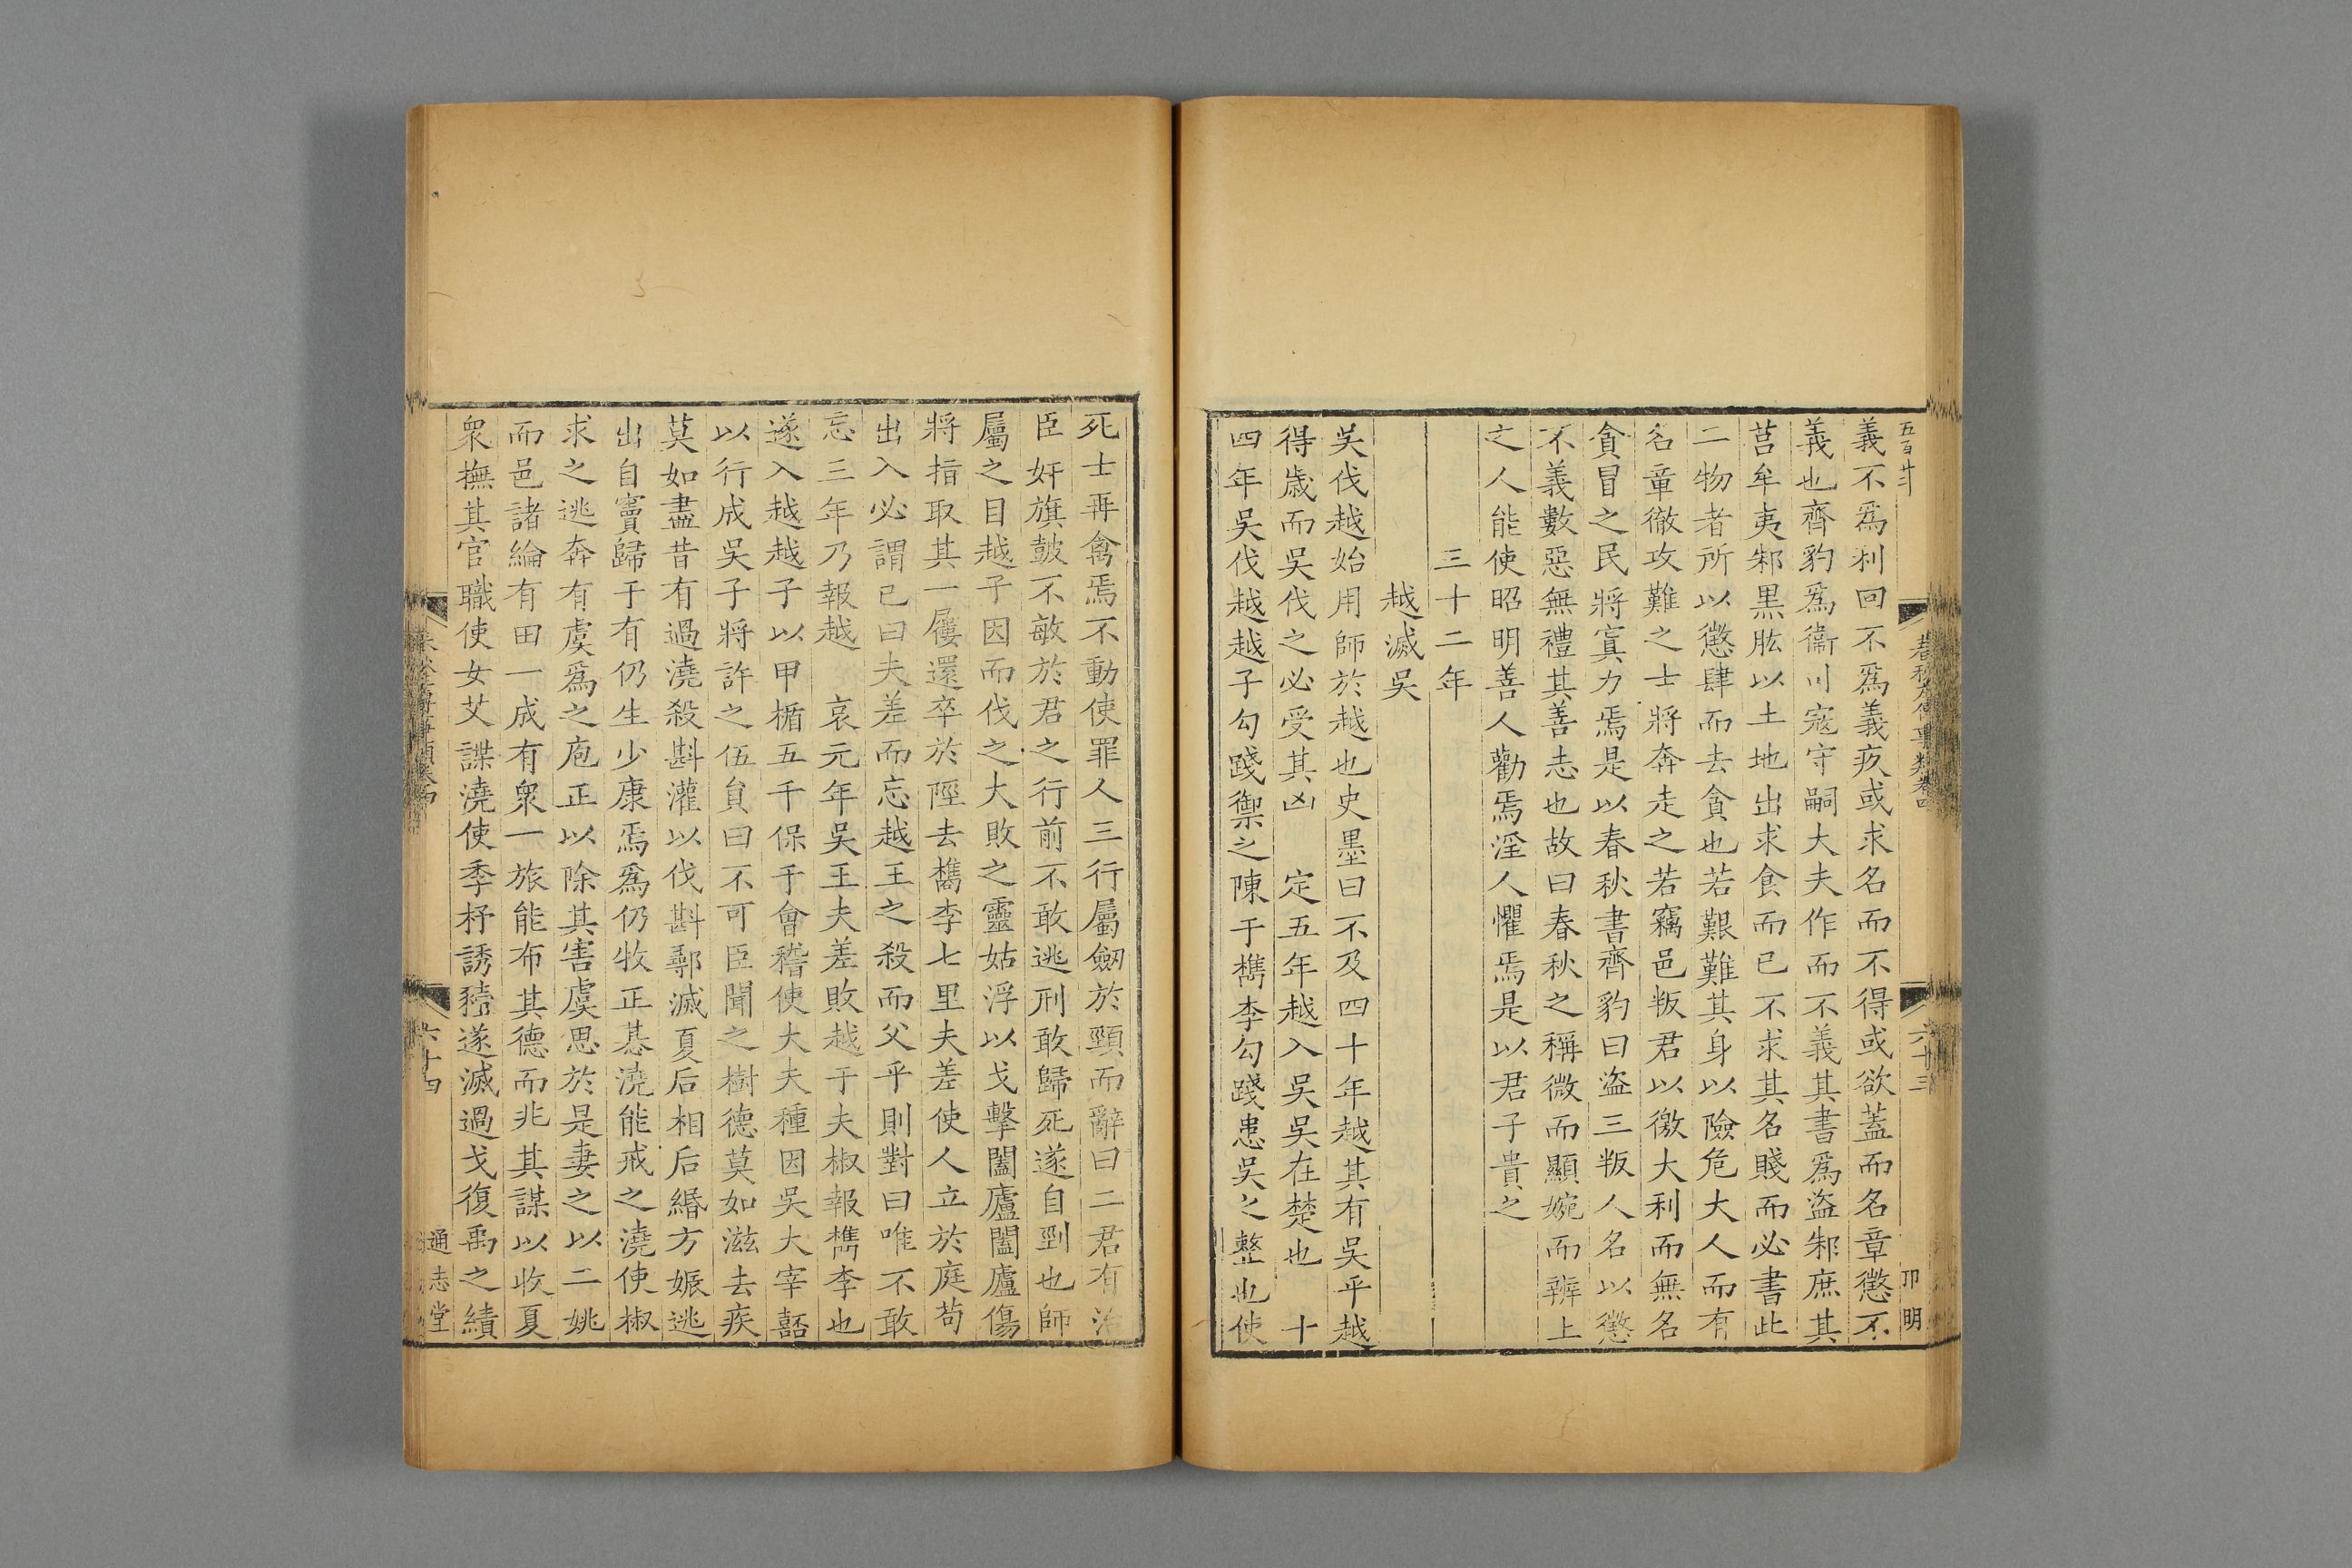 義不爲利回不爲義疚或求名而不得或欲蓋而名章懲不
義也齊豹爲衞司寇守嗣大夫作而不義其書爲盜邾庶其
莒牟夷邾黒肱以土地出求食而已不求其名賤而必書此
二物者所以懲肆而去貪也若艱難其身以險危大人而有
名章徹攻難之士將奔走之若竊邑叛君以徼大利而無名
貪冒之民將寘力焉是以春秋書齊豹曰盜三叛人名以懲
不義數惡無禮其善志也故曰春秋之稱微而顯婉而辨上
之人能使昭明善人勸焉淫人懼焉是以君子貴之
三十二年
越滅吳
吳伐越始用師於越也史墨曰不及四十年越其有吳乎越
得歳而吳伐之必受其凶　定五年越入吳吳在楚也　十
四年吳伐越越子勾踐禦之陳于檇李勾踐患吳之整也使
死士再禽焉不動使罪人三行屬劒於頸而辭曰二君有治
臣奸旗鼓不敏於君之行前不敢逃刑敢歸死遂自剄也師
屬之目越子因而伐之大敗之靈姑浮以戈擊闔廬闔廬傷
將指取其一屨還卒於陘去檇李七里夫差使人立於庭苟
出入必謂已曰夫差而忘越王之殺而父乎則對曰唯不敢
忘三年乃報越　哀元年吳王夫差敗越于夫椒報檇李也
遂入越越子以甲楯五千保于會稽使大夫種因吳大宰嚭
以行成吳子將許之伍員曰不可臣聞之樹德莫如滋去疾
莫如盡昔有過澆殺斟灌以伐斟鄩滅夏后相后緡方娠逃
出自竇歸于有仍生少康焉爲仍牧正惎澆能戒之澆使椒
求之逃奔有虞爲之庖正以除其害虞思於是妻之以二姚
而邑諸綸有田一成有衆一旅能布其德而兆其謀以收夏
衆撫其官職使女艾諜澆使季杼誘豷遂滅過戈復禹之績
六十四
通志堂